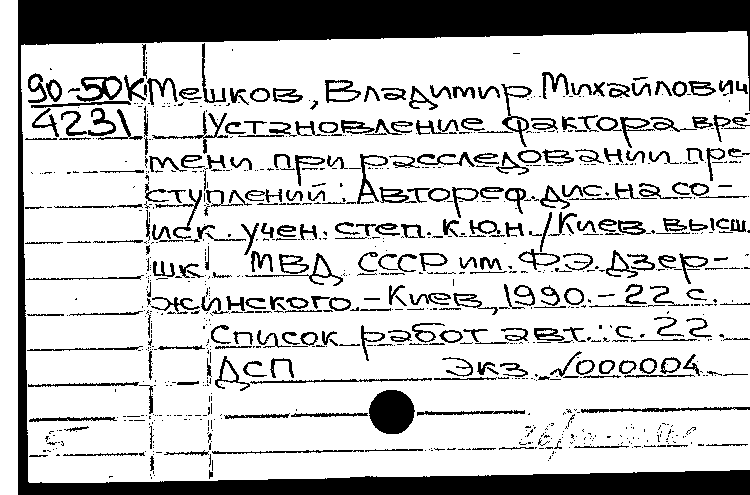 90-50К Мешков, Владимир Михайлович
4231 Установление фактора вре
мени при расследовании пре-
ступлений: Автореф. дис. на со-
иск. учен. степ. к.ю.н. / Киев. высш.
шк. МВД СССР им. Ф.Э. Дзер-
жинского. - Киев, 1990. - 22 с.
Список работ авт.: с. 22.
ДСП Экз. √000004
5